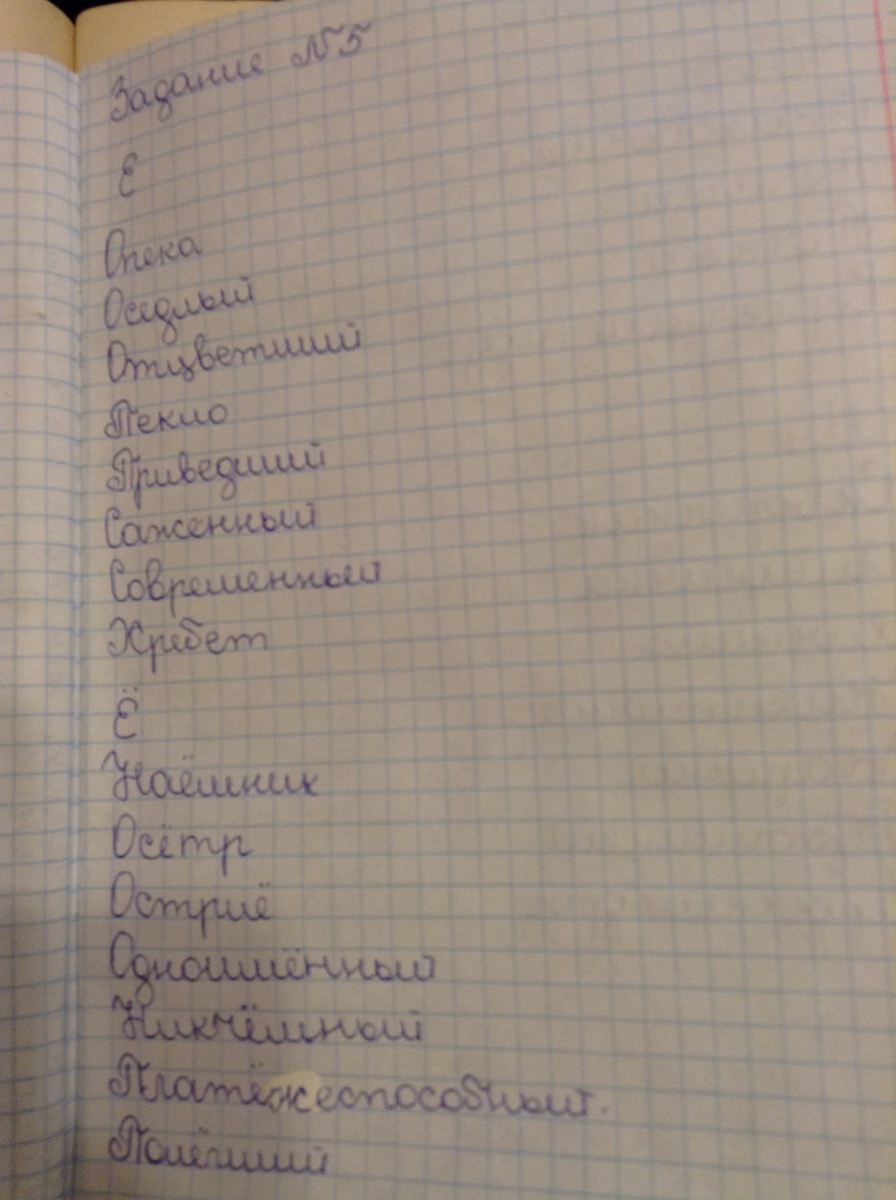 Задание №5
Е
Опека
Оседлый
Отцветший
Пекло
Приведший
Саженный
Современный
Хребет
Ё
Наёмник
Осётр
Остриё
Одноимённый
Никчёмный
Платёжеспособный.
Полёгший